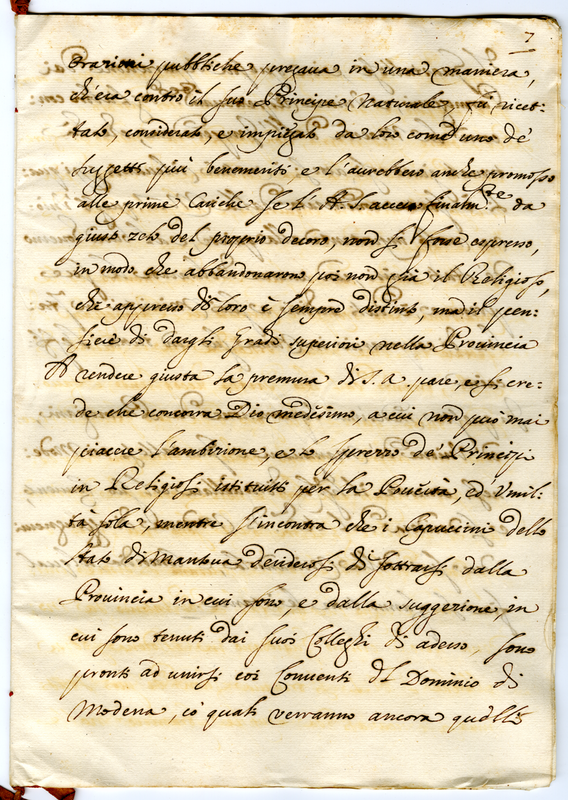 7
orazioni pubbliche pregaua in una maniera,
ch'era contro il suo Principe Naturale fù ricet-
tato, considerato, e impiegato da loro come uno de'
suggetti più benemeriti e l'aurebbero anche promosso
alle prime Cariche se l'A. S. accesa finalm.te da
giusto zelo del proprio decoro, non si fosse espresso,
in modo, che abbandonaron poi non già il Religioso,
che appresso di loro è sempre distinto, ma il pen-
siere di dargli Gradi superiori nella Provincia
A rendere giusta la premura di S. A. pare, e si cre-
de che concorra Dio medesimo, a cui non può mai
piacere l'ambizione, e lo sprezzo de' Principi
in Religiosi istituiti per la Pouertà, ed Umil-
tà sola, mentre s'incontra che i Capuccini dello
Stato di Mantoua desiderosi di sottrarsi dalla
Prouincia in cui sono e dalla suggezione, in
cui sono tenuti dai suoi Colleghi di adesso, sono
pronti ad unirsi coi Conuenti del Dominio di
Modena, co' quali verranno ancora quelli